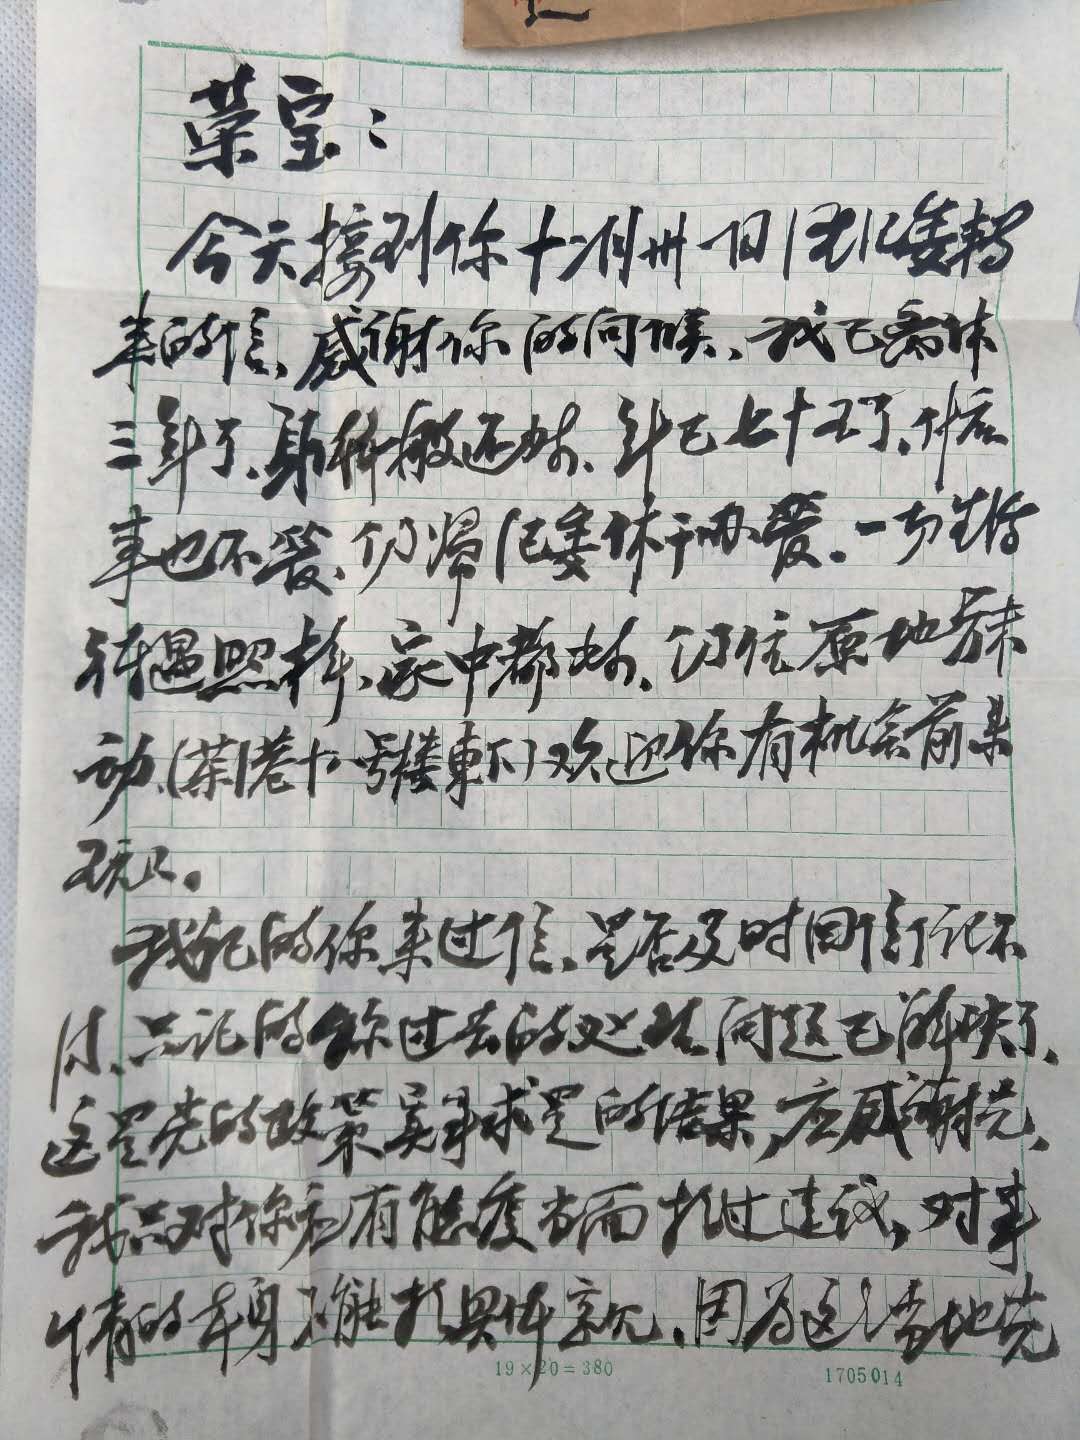 荣宝：
今天接到你十一月卅一日由纪委转
来的信、感谢你的问候、我已离休
三年了、身体搬还好、年已七十五了、什么
事也不管、仍归纪委休干办管。一切生活
待遇照样、家中都好、仍住原地方未
动、(茶港十一号楼东下)欢迎你有机会前来
玩。
我记的你来过信、是否及时回信记不
清、只记的你过去的处理问题已解决了、
这是党的政策实事求是的结果，应感谢党、
我只对你有态度方面提过建议，对事
情的本身不能提具体意见、因为这是当地党
19×20=380
1705014